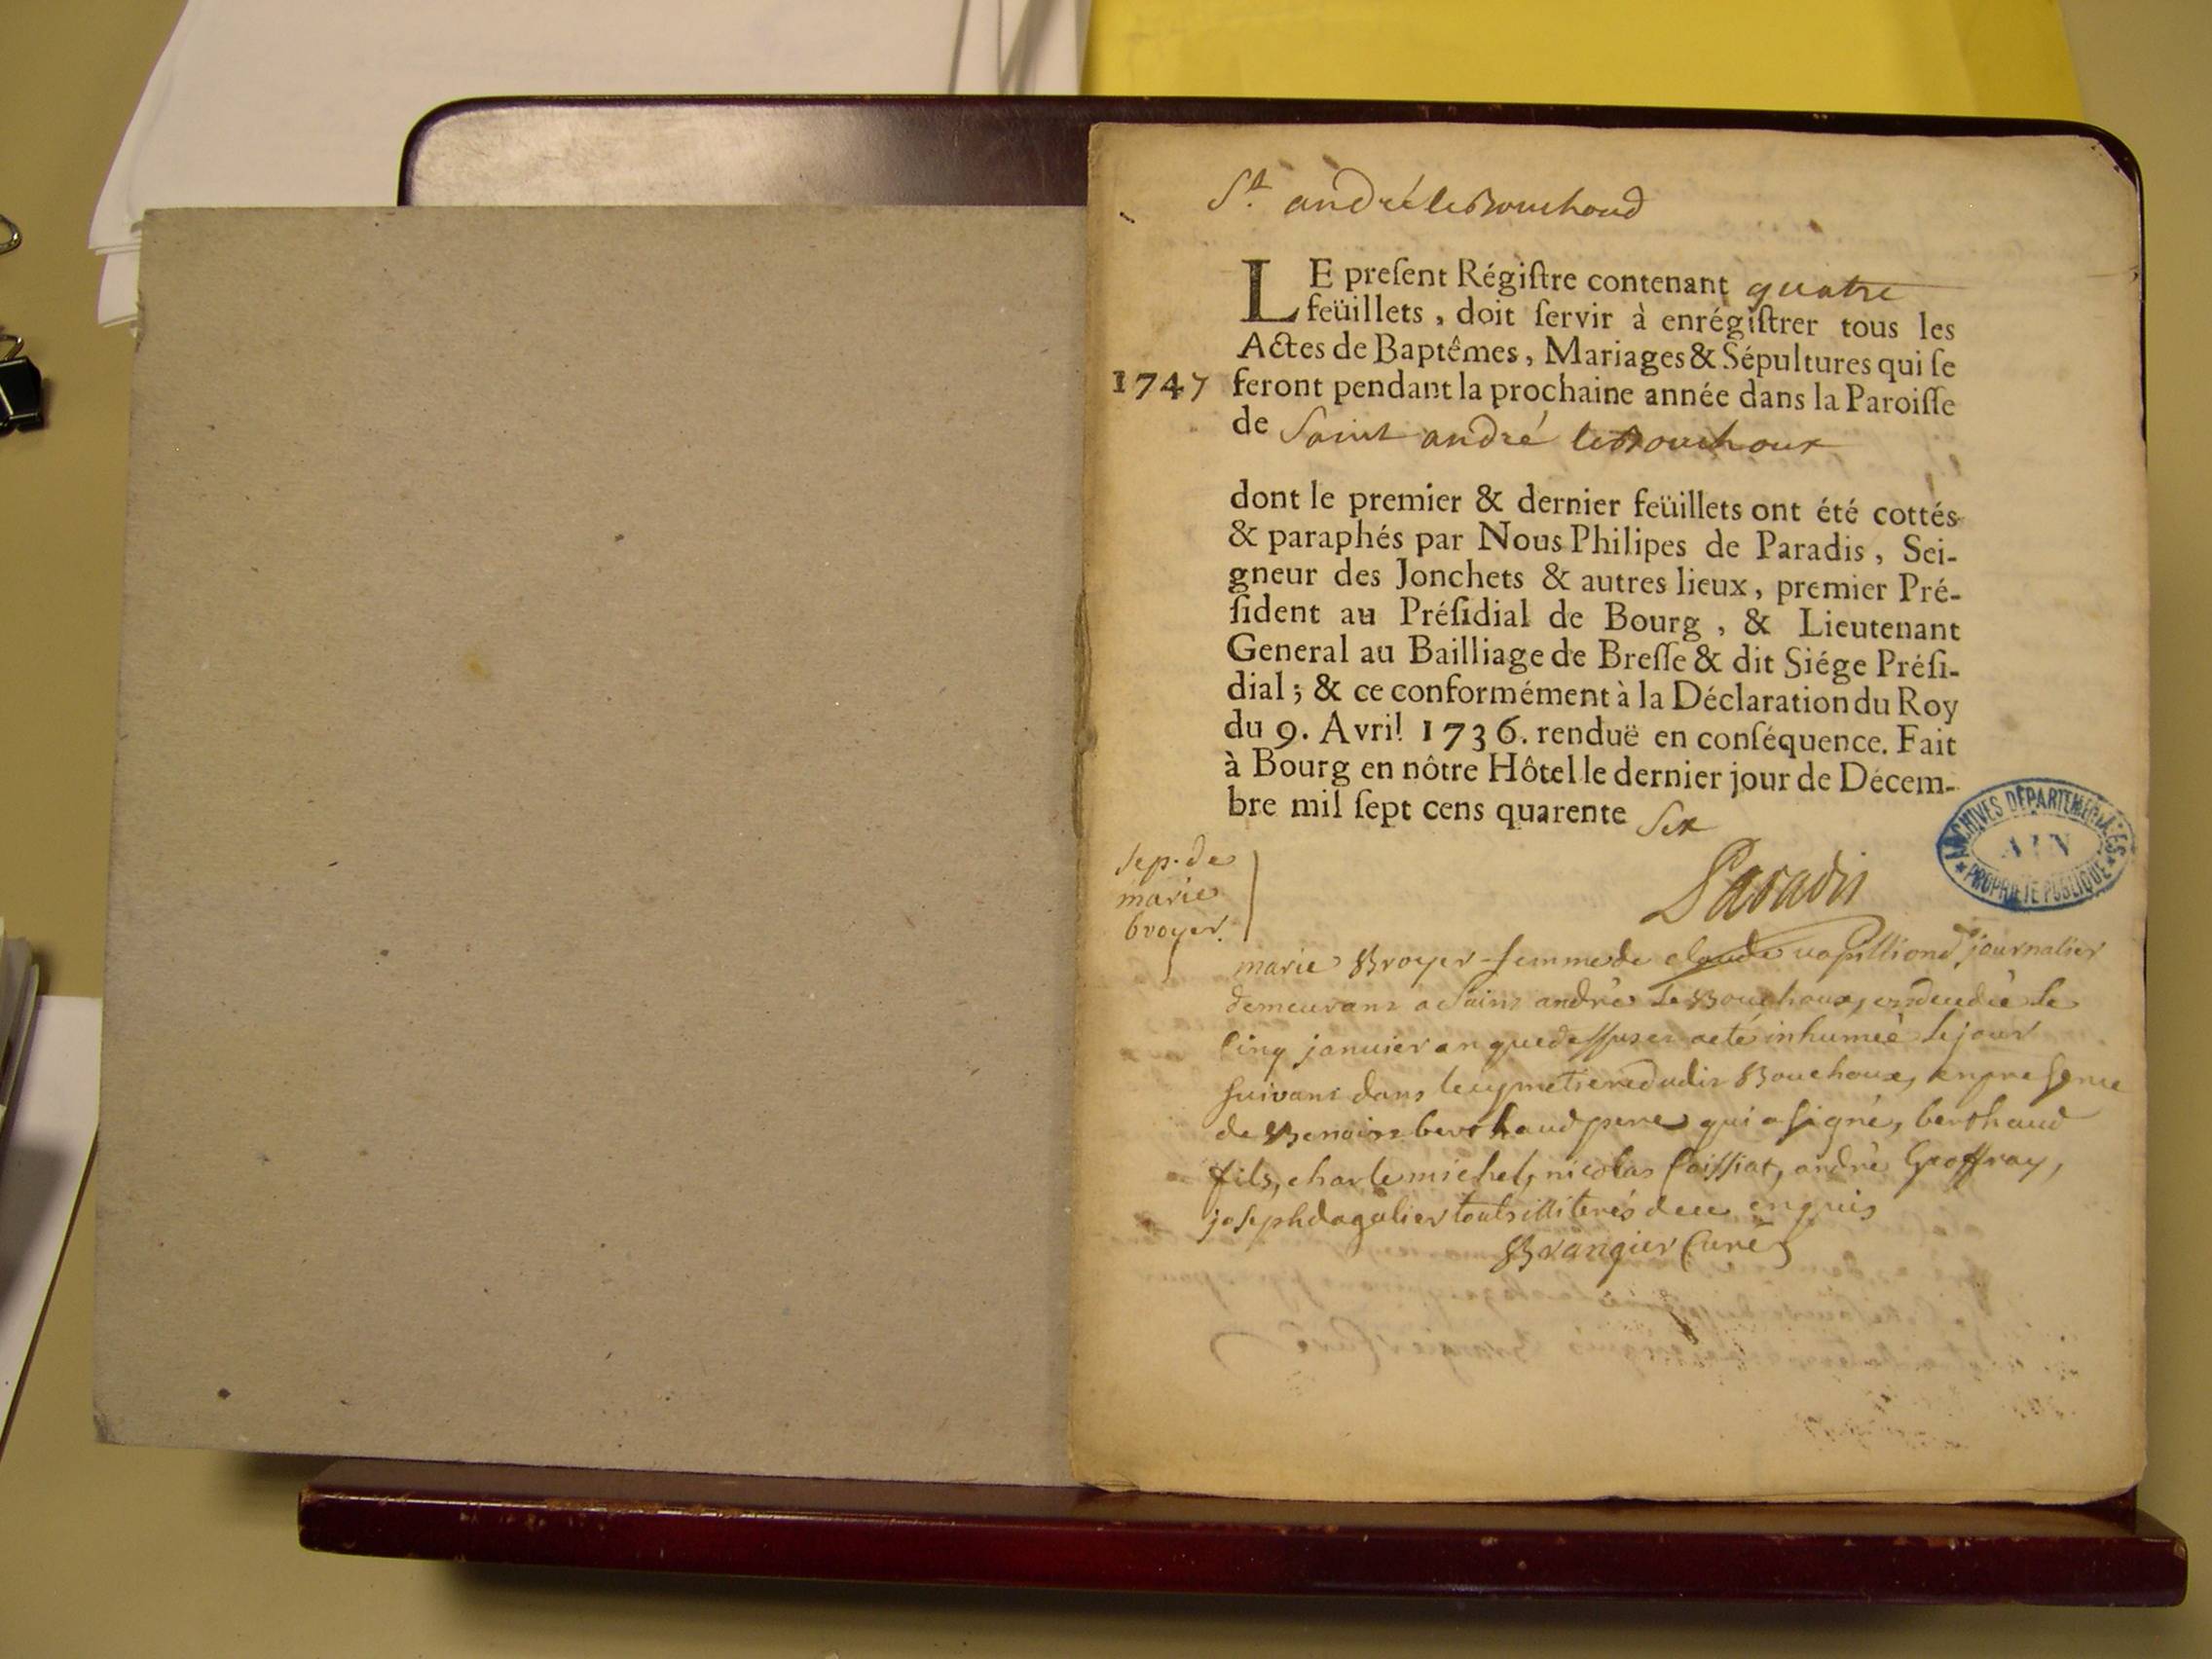 St. andré le Bouchoud
LE preſent Régiſtre contenant quatre
feüillets, doit ſervir à enrégiſtrer tous les
Actes de Baptêmes, Mariages & Sépultures qui ſe
1747 feront pendant la prochaine année dans la Paroiſſe
de Saint andré le Bouchoux
dont le premier & dernier feüillets ont été cottés
& paraphés par Nous Philipes de Paradis, Sei-
gneur des Jonchets & autres lieux, premier Pré-
ſident au Préſidial de Bourg, & Lieutenant
General au Bailliage de Breſſe & dit Siége Préſi-
dial; & ce conformément à la Déclaration du Roy
du 9. Avril 1736. renduë en conſéquence. Fait
à Bourg en nôtre Hôtel le dernier jour de Décem-
bre mil ſept cens quarente Six
Paradis
ARCHIVES DÉPARTEMENTALES
AIN
PROPRIÉTÉ PUBLIQUE
sep. de
marie
broyer.
marie Broyer femme de claude journalier
demeurant a Saint andré le Bouchoux, est decedée le
Cinq janvier an que dessus et a eté inhumée le jour
suivant dans le cymetiere dudit Bouchoux, en presence
de Benoist berthaud pere qui a signé, berthaud
fils, charle michel, nicolas Poissiat, andré Geoffray,
joseph dagalier touts illiterés de ce enquis
Brangier Curé